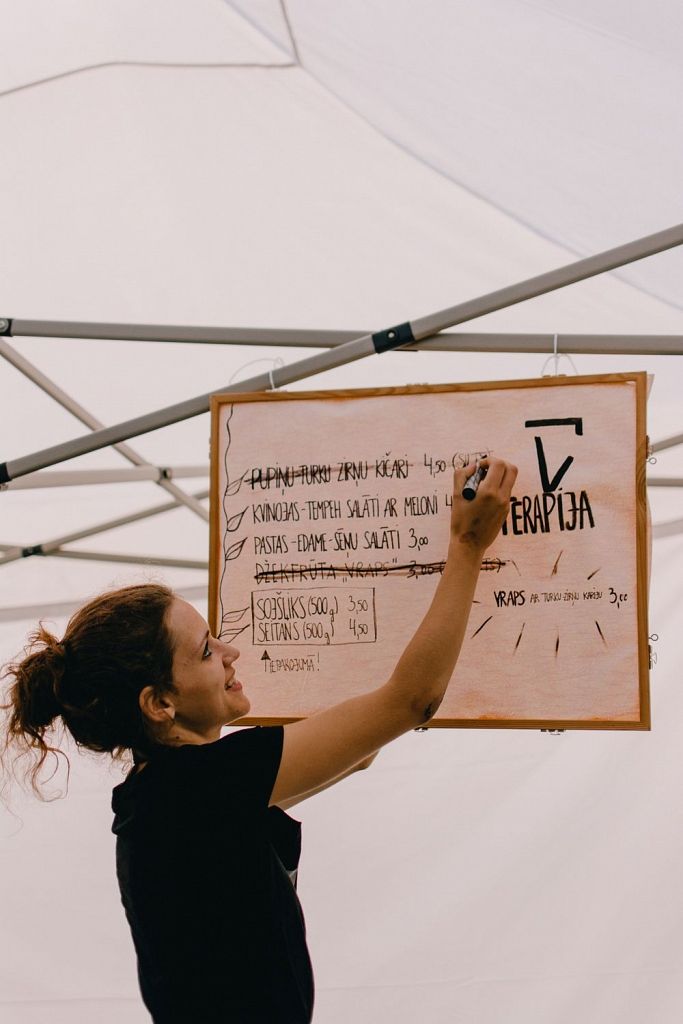 PUPIŅU-TURKU ZIRŅU KIČARI 4,50
KVINOJAS-TEMPEH SALĀTI AR MELONI 4
PASTAS-EDAME-SĒŅU SALĀTI 3,00
DŽEKFRŪTA „VRAPS" 3,00
SOJŠLIKS (500g) 3,50
SEITANS (500g) 4,50
IEPAKOJUMĀ!
V
TERAPIJA
VRAPS AR TURKU-ZIRŅU KARIJU 3,00